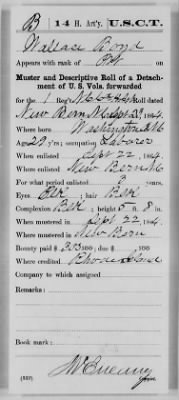 B | 14 H. Art'y. | U.S.C.T.
Wallace Boyd
Appears with rank of Pvt on
Muster and Descriptive Roll of a Detach-
ment of U. S. Vols. forwarded
for the Roll dated
New Bern N.C. Sept 23, 1864.
Where born Washington N.C.
Age 23 y'rs; occupation Laborer
When enlisted Sept 22, 1864.
Where enlisted New Bern N.C.
For what period enlisted 3 years.
Eyes Blk; hair Blk
Complexion Blk; height 5 ft. 8 in.
When mustered in Sept 22, 1864.
Where mustered in New Bern
Bounty paid $ 100; due $ 100
Where credited Rhode Island
Company to which assigned
Remarks:
Book mark:
(339) Copyist.